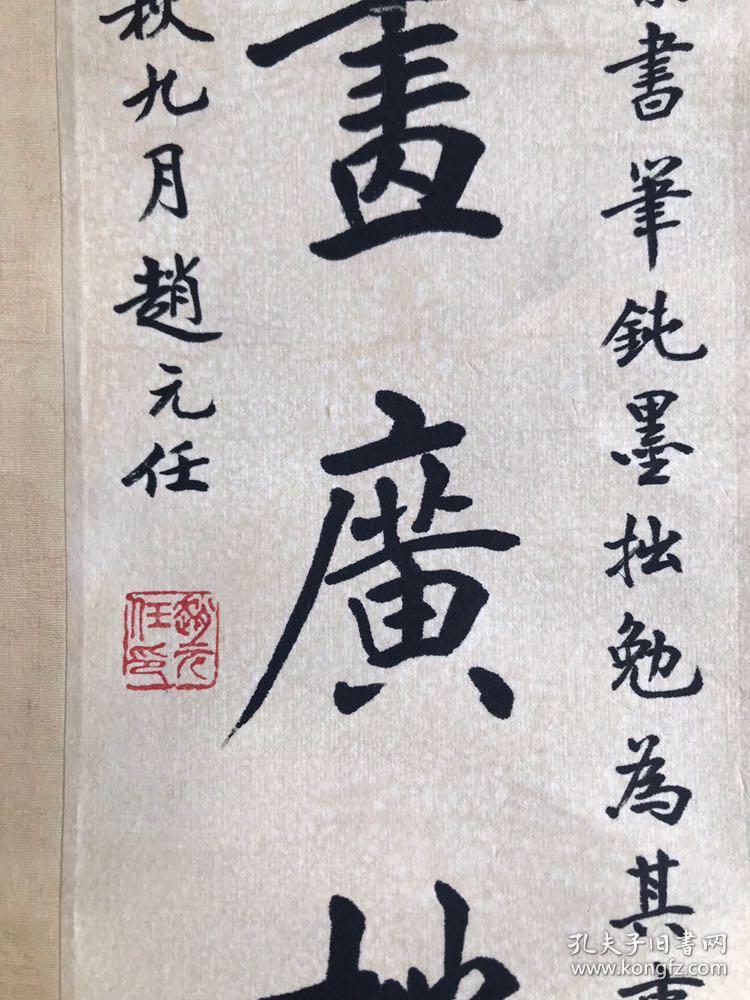 書筆鈍墨拙勉為其
畫廣
秋九月趙元任
趙元任印
孔夫子旧书网
www.kongfz.com